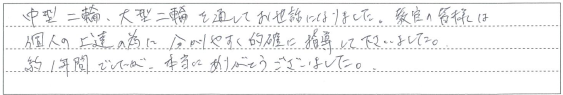 中型二輪、大型二輪を通してお世話になりました。教官の皆様には
個人の上達の為に分かりやすく的確に指導して下さいました。
約1年間でしたが、本当にありがとうございました。